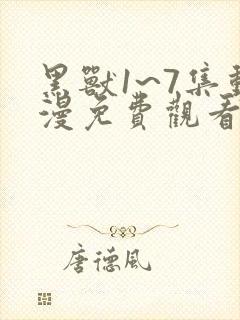 黑獸1~7集動
漫免費觀看
唐德風